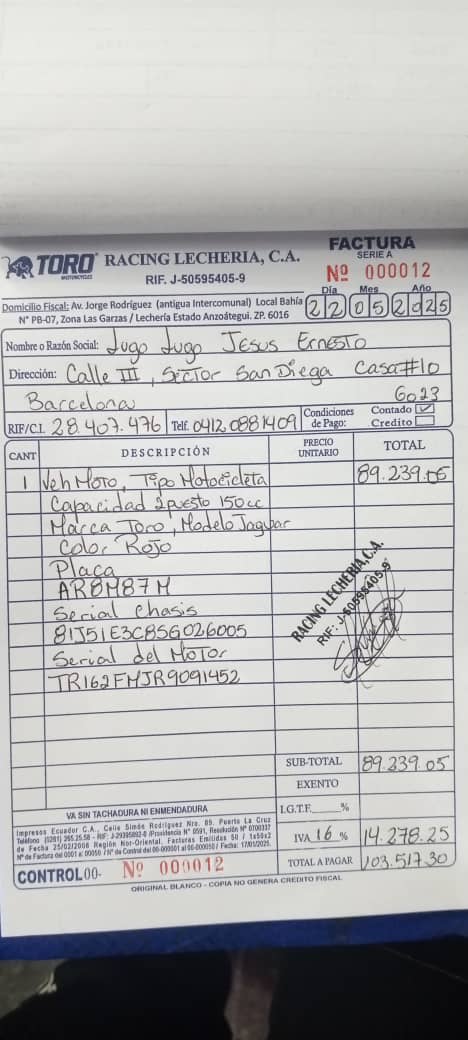 TORO
MOTORCYCLES
RACING LECHERIA, C.A.
RIF. J-50595405-9
FACTURA
SERIE A
Nº 000012
Domicilio Fiscal: Av. Jorge Rodríguez (antigua Intercomunal) Local Bahía
N° PB-07, Zona Las Garzas / Lechería Estado Anzoátegui. ZP. 6016
Día Mes Año
22 05 2025
Nombre o Razón Social: Lugo Lugo Jesus Ernesto
Dirección: Calle III, Sector San Diega Casa #10
Barcelona 6023
RIF/C.I. 28.407.476 Telf. 0412 0881409 Condiciones de Pago: Contado ✓ Credito
CANT DESCRIPCIÓN PRECIO UNITARIO TOTAL
1 Veh Moto, Tipo Motocicleta 89.239.05
Capacidad 2 puesto 150cc
Marca Toro, Modelo Jaguar
Color Rojo
Placa
AR8M87M
Serial Chasis
81J51E3C8SG026005
Serial del Motor
TR162FMJR9091452
RACING LECHERIA, C.A.
RIF: J-50595405-9
SUB-TOTAL 89.239.05
EXENTO
VA SIN TACHADURA NI ENMENDADURA
I.G.T.F. %
Impresos Ecuador C.A., Calle Simón Rodríguez Nro. 85, Puerto La Cruz
Teléfono (0281) 265.25.58 - RIF: J-29395892-0 /Providencia N° 0591, Resolución N° 0700337
de Fecha 25/02/2008 Región Nor-Oriental. Facturas Emitidas 50 / 1x50x2
N° de Factura del 0001 al 00050 / N° de Control del 00-000001 al 00-000050 / Fecha: 17/01/2025.
IVA 16 % 14.278.25
CONTROL 00- Nº 000012
TOTAL A PAGAR 103.517.30
ORIGINAL BLANCO - COPIA NO GENERA CREDITO FISCAL